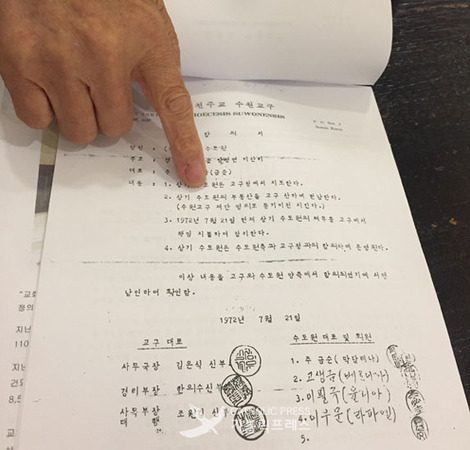 천주교 수원교구
DIOECESIS SUWONENSIS
P. O. Box
Suwon, Korea
합의서
수도원
주소
대표 (금순)
내용 : 1. 상기 수도원은 교구청에서 지도한다.
2. 상기 수도원의 부동산을 교구 산하에 헌납한다.
(수원교구 재단 명의로 등기이전 시킨다.)
3. 1972년 7월 21일 현재 상기 수도원의 채무를 교구에서
책임 지불하며 정리한다.
4. 상기 수도원은 수도원측과 교구청과의 합의하에 운영된다.
이상 내용을 교구와 수도원 양측에서 합의되었기에 서명
날인하며 확인함.
1972년 7월 21일
교구 대표
수도원 대표 및 회원
사무국장 김은식 신부
1. 주 금순 (막달레나)
경리부장 한의수 신부
2. 고생금 (베르나다)
사목부장 조원 신부
3. 이필숙 (율리아)
대행
4. 이무문 (라파엘)
5.
CATHOLIC PRESS
가톨릭프레스
"교회
정의
지난
110
지난
건드
8,5
교
실